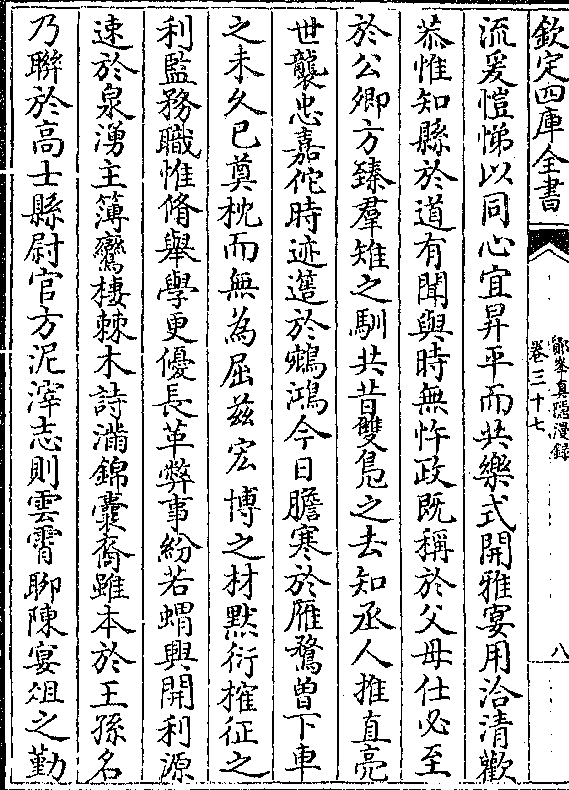 欽定四庫全書
鄮峯真隱漫録
卷三十七
八
流爰愷悌以同心宜昇平而共樂式開雅宴用洽清歡
恭惟知縣於道有聞與時無忤政既稱於父母仕必至
於公卿方臻羣雉之馴共昔雙鳬之去知丞人推直亮
世襲忠嘉佗時迹邁於鵷鴻今日膽寒於雁鶩曽下車
之未久已奠枕而無為屈兹宏博之材默衍搉征之
利監務職惟脩舉學更優長革弊事紛若蝟興開利源
速於泉湧主簿鸞棲棘木詩滿錦囊裔雖本於王孫名
乃聯於高士縣尉官方泥滓志則雲霄聊陳宴俎之勤